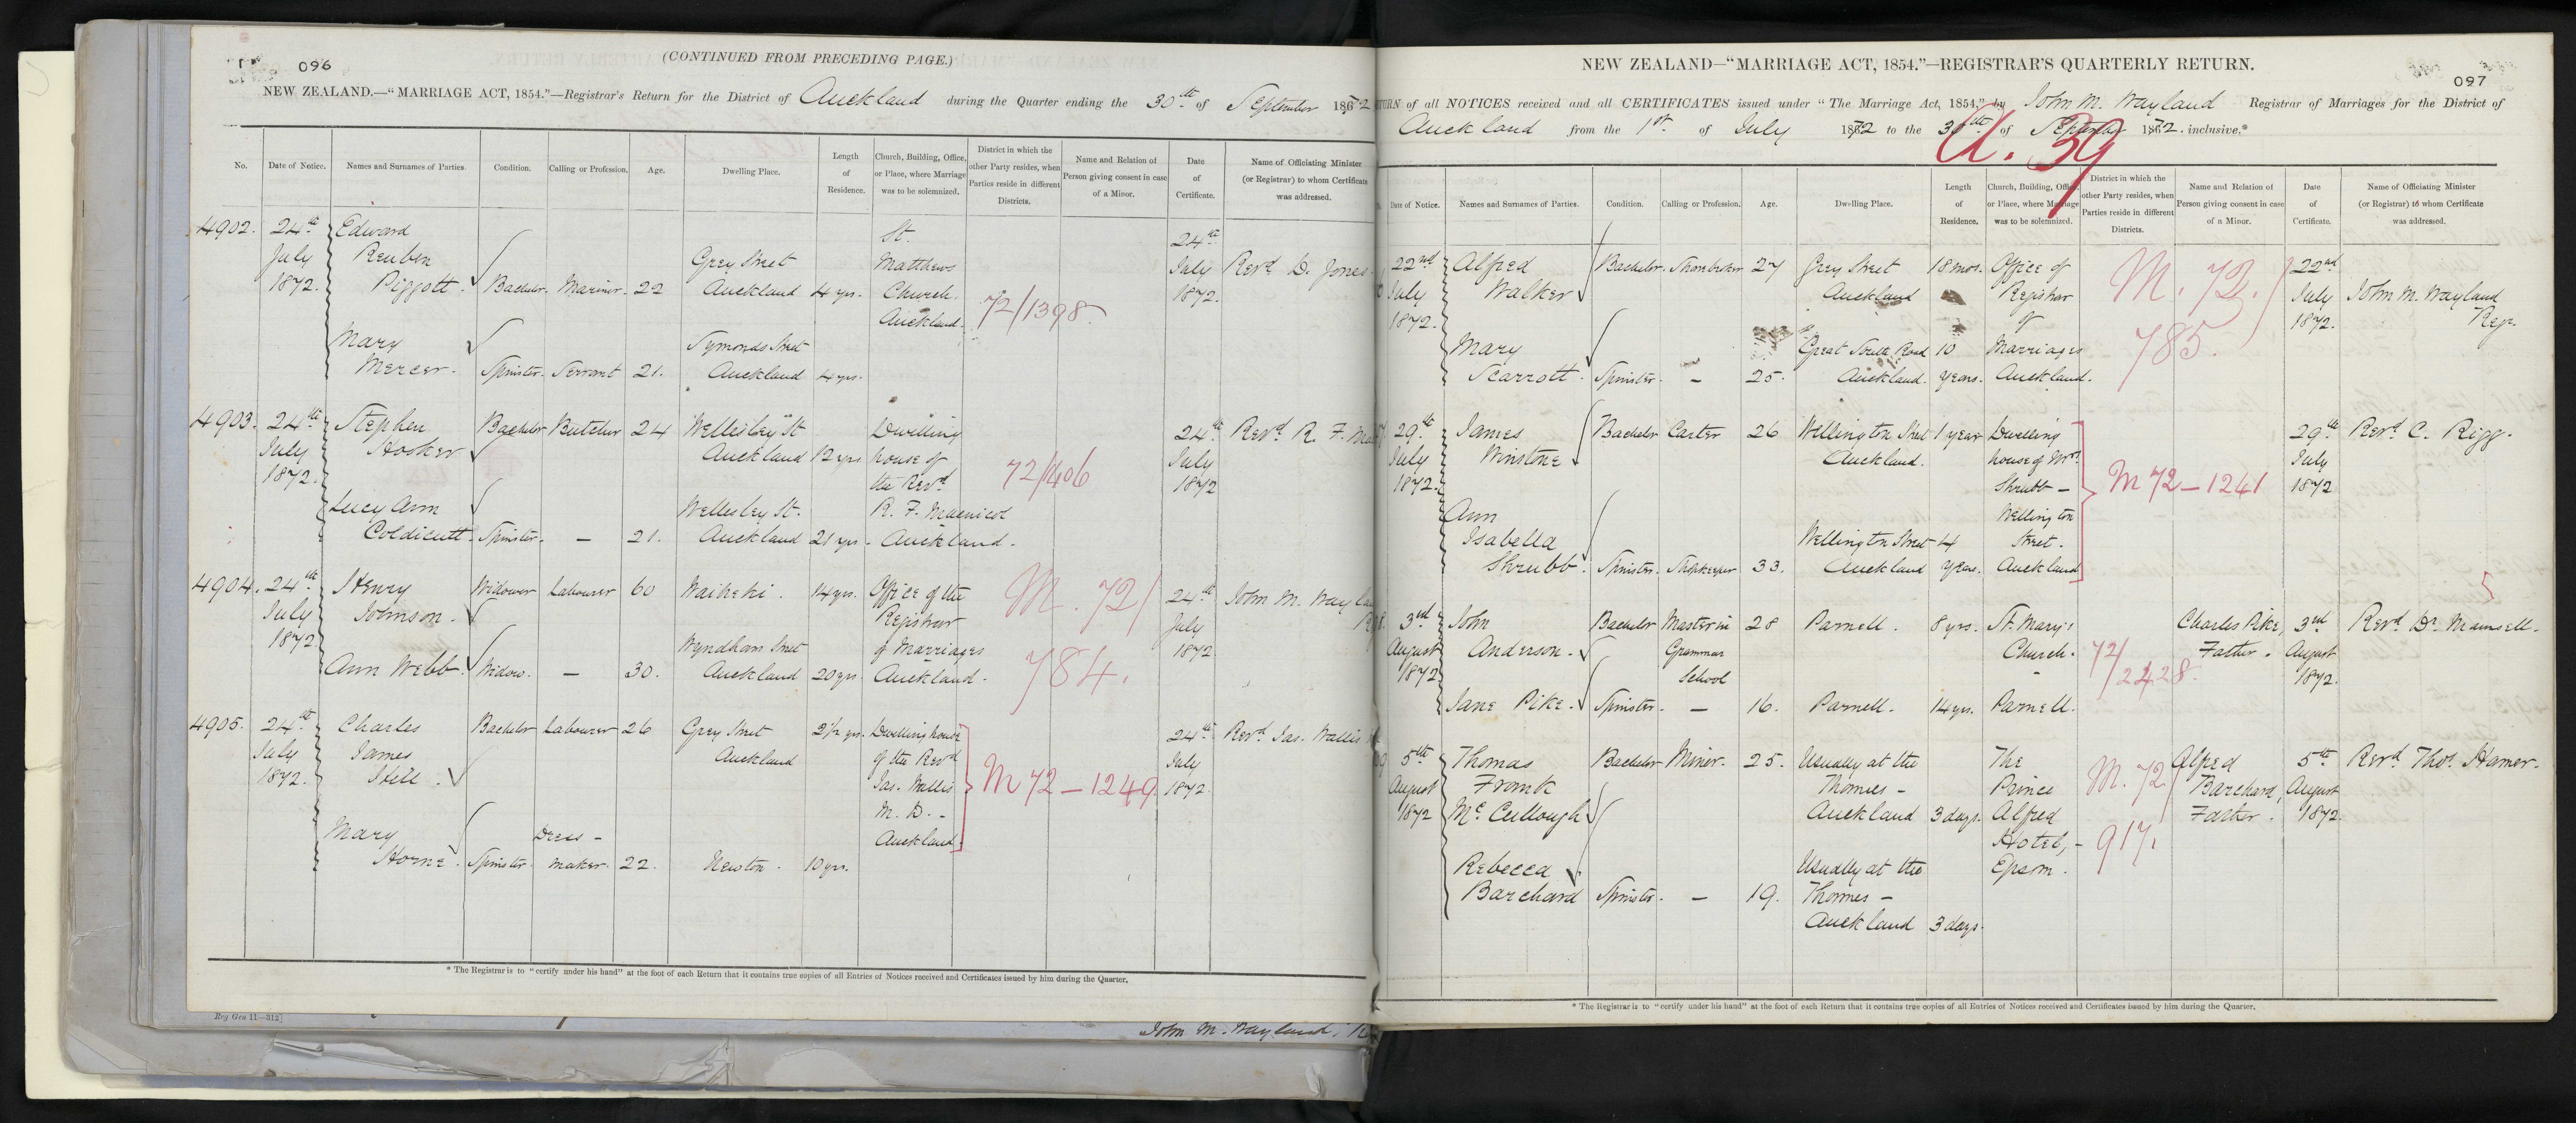 096
(CONTINUED FROM PRECEDING PAGE.)
NEW ZEALAND.—"MARRIAGE ACT, 1854."—Registrar's Return for the District of Auckland during the Quarter ending the 30th of September 1872
No. Date of Notice. Names and Surnames of Parties. Condition. Calling or Profession. Age. Dwelling Place. Length of Residence. Church, Building, Office, or Place, where Marriage was to be solemnized. District in which the other Party resides, when Parties reside in different Districts. Name and Relation of Person giving consent in case of a Minor. Date of Certificate. Name of Officiating Minister (or Registrar) to whom Certificate was addressed.
4902. 24th July 1872. Edward Reuben Piggott. Bachelor. Mariner. 22 Grey Street Auckland 4 yrs. St. Matthews Church. Auckland. 72/1398 24th July 1872. Revd D. Jones
Mary Mercer. Spinster. Servant 21. Symonds Street Auckland 4 yrs.
4903. 24th July 1872. Stephen Hooker Bachelor Butcher 24 Wellesley St Auckland 12 yrs Dwelling house of the Revd R. F. Macnicol Auckland. 72/1406 24th July 1872 Revd R. F.
Lucy Ann Coldicutt. Spinster. — 21. Wellesley St. Auckland 21 yrs.
4904. 24th July 1872 Henry Johnson. Widower Labourer 60 Waiheki. 14 yrs. Office of the Registrar of Marriages Auckland. M. 72/784. 24th July 1872 John M. Wayland
Ann Webb. Widow. — 30. Wyndham Street Auckland 20 yrs
4905. 24th July 1872. Charles James Stell. Bachelor Labourer 26 Grey Street Auckland 2½ yrs. Dwelling house of the Revd Jas. Wallis M. D. - Auckland. M 72 — 1249 24th July 1872. Revd Jas. Wallis
Mary Horne. Spinster. Dress-maker. 22. Newton. 10 yrs.
* The Registrar is to "certify under his hand" at the foot of each Return that it contains true copies of all Entries of Notices received and Certificates issued by him during the Quarter.
Reg Gen 11—312]
John M. Wayland,
NEW ZEALAND—"MARRIAGE ACT, 1854."—REGISTRAR'S QUARTERLY RETURN.
097
TURN of all NOTICES received and all CERTIFICATES issued under "The Marriage Act, 1854," by John M. Wayland Registrar of Marriages for the District of
Auckland from the 1st of July 1872 to the 30th of September 1872. inclusive.*
U. 39
Date of Notice. Names and Surnames of Parties. Condition. Calling or Profession. Age. Dwelling Place. Length of Residence. Church, Building, Office, or Place, where Marriage was to be solemnized. District in which the other Party resides, when Parties reside in different Districts. Name and Relation of Person giving consent in case of a Minor. Date of Certificate. Name of Officiating Minister (or Registrar) to whom Certificate was addressed.
22nd July 1872. Alfred Walker Bachelor. Sharebroker 27 Grey Street Auckland 18 mos. Office of Registrar of Marriages Auckland. M. 72/785. 22nd July 1872. John M. Wayland Regr.
Mary Scarrott. Spinster. — 25. Great South Road Auckland. 10 years.
29th July 1872. James Winstone Bachelor Carter 26 Wellington Street Auckland. 1 year Dwelling house of Mrs. Shrubb — Wellington Street. Auckland M 72 — 1241 29th July 1872 Revd C. Rigg.
Ann Isabella Shrubb. Spinster. Shopkeeper 33. Wellington Street Auckland 14 years.
3rd August 1872 John Anderson. Bachelor Master in Grammar School 28 Parnell. 8 yrs. St. Mary's Church. Parnell. 72/2428. Charles Pike, Father. 3rd August 1872. Revd Dr Maunsell.
Jane Pike. Spinster. — 16. Parnell. 14 yrs.
5th August 1872 Thomas Frank McCullough Bachelor Miner. 25. Usually at the Thames — Auckland 3 days. The Prince Alfred Hotel, - Epsom. M. 72/917. Alfred Barchard, Father. 5th August 1872. Revd Thos. Hamer.
Rebecca Barchard Spinster. — 19. Usually at the Thames — Auckland 3 days.
* The Registrar is to "certify under his hand" at the foot of each Return that it contains true copies of all Entries of Notices received and Certificates issued by him during the Quarter.